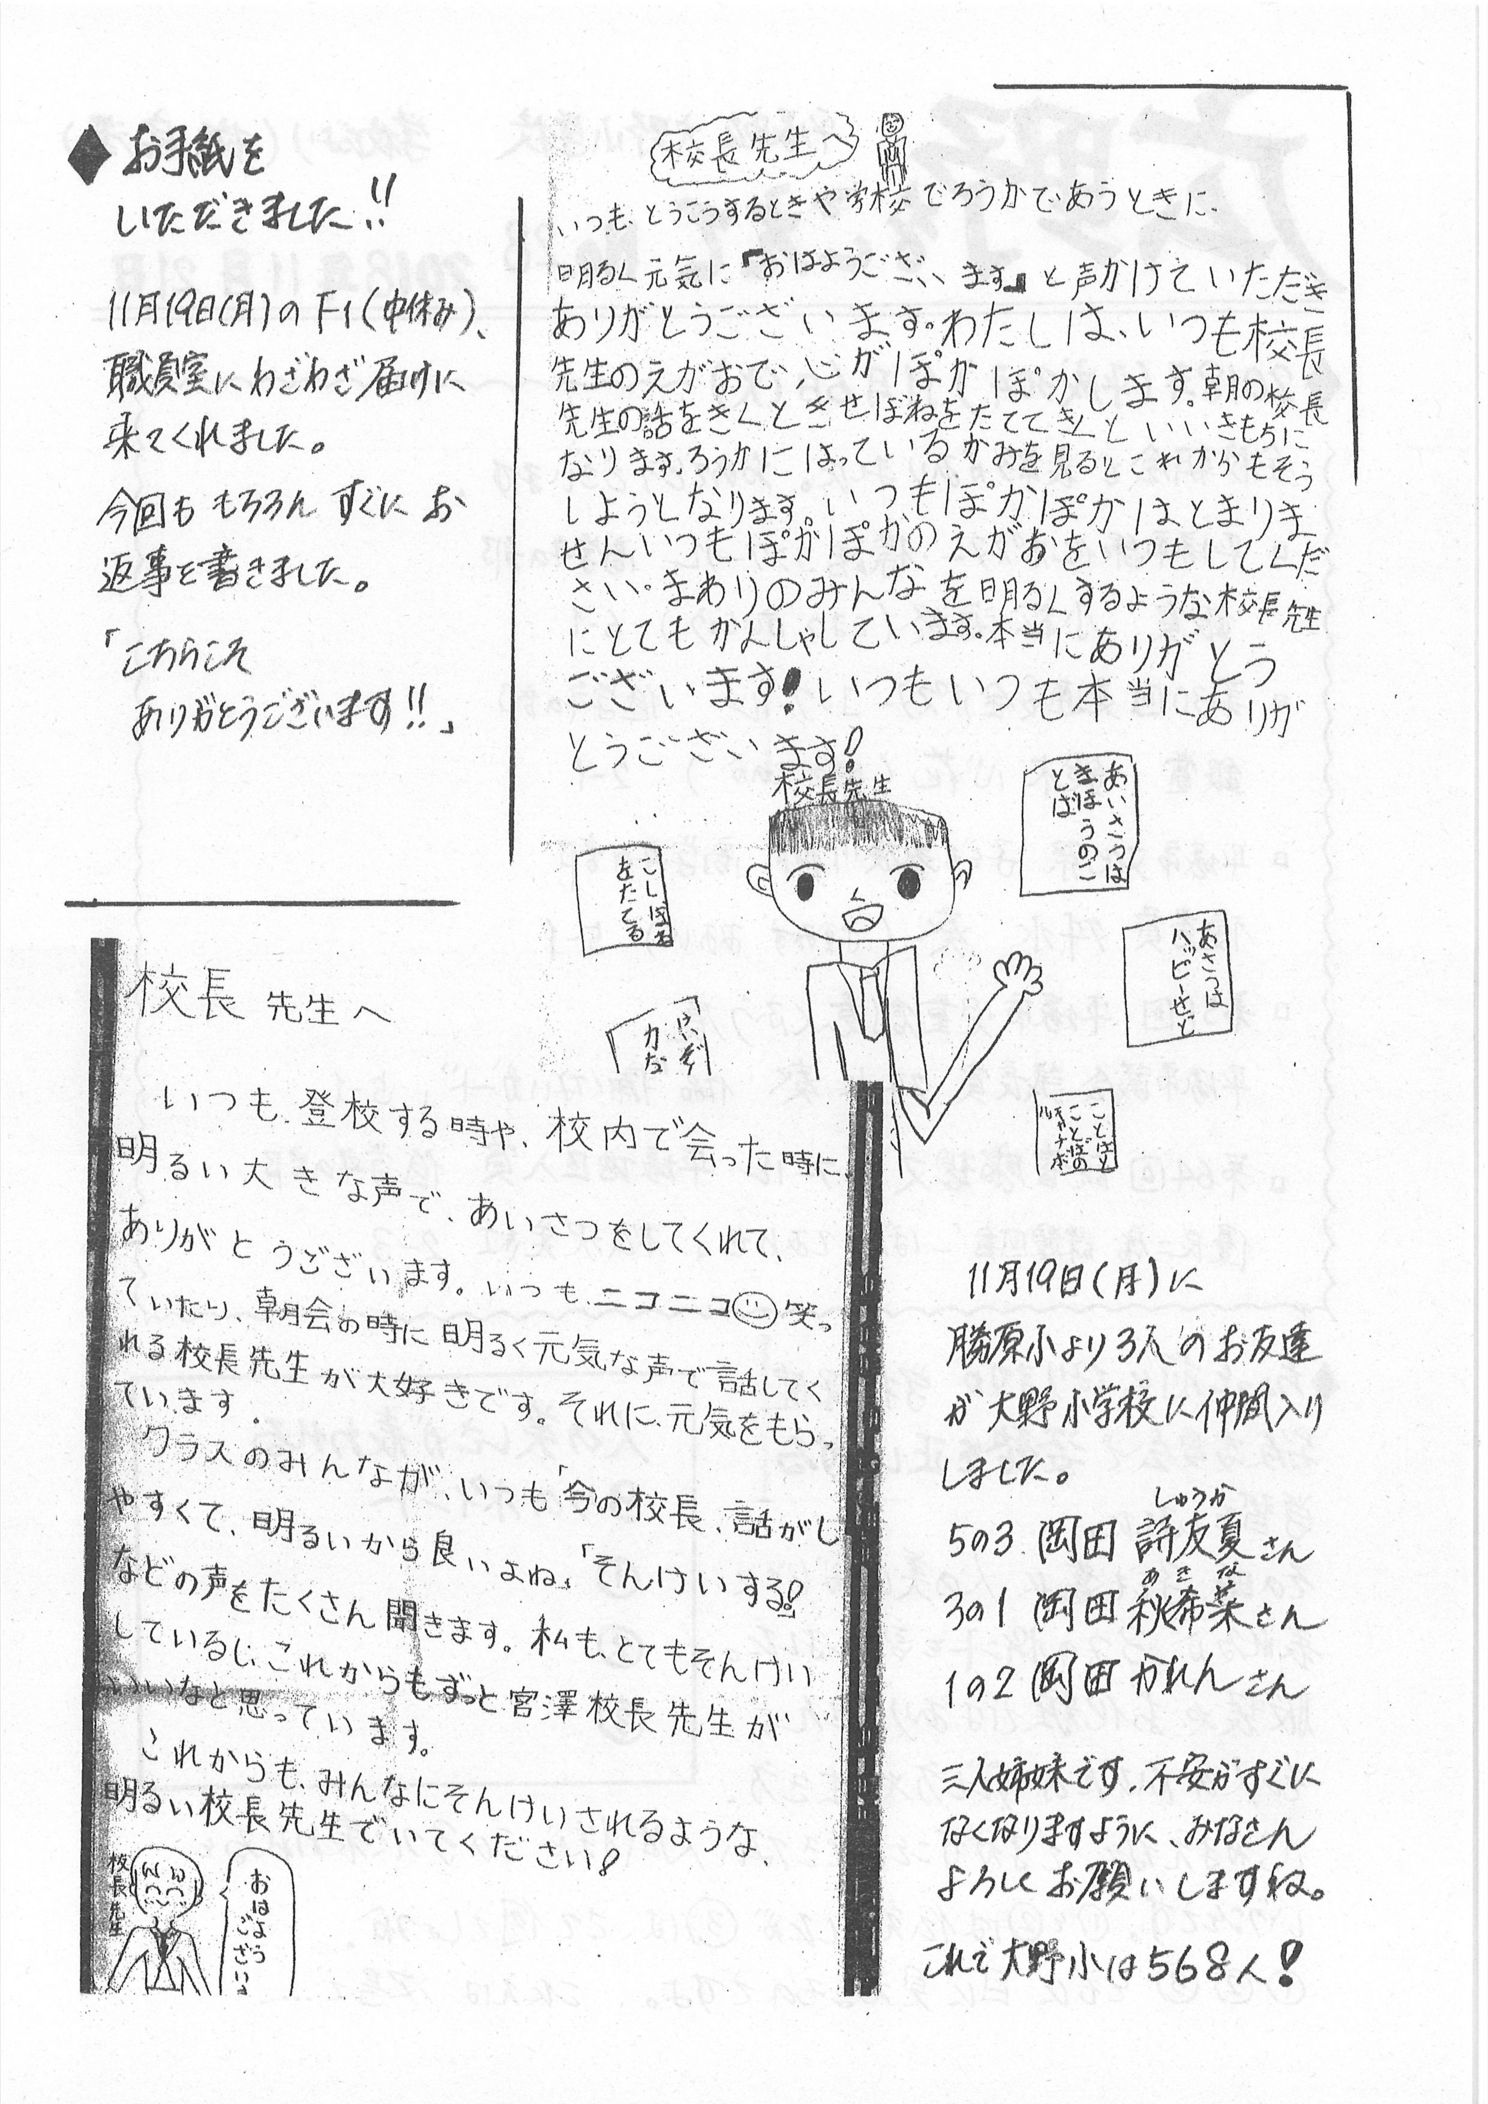 ◆お手紙を
いただきました!!
11月19日(月)のF1(中休み)、
職員室にわざわざ届けに
来てくれました。
今回ももちろんすぐにお
返事を書きました。
「こちらこそ
ありがとうございます!!」
校長先生へ
いつも、とうこうするときや学校でろうかであうときに、
明るく元気に『おはようございます』と声かけていただき
ありがとうございます。わたしは、いつも校長
先生のえがおで、心がぽかぽかします。朝の校長
先生の話をきくときせぼねをたててきくといいきもちに
なります。ろうかにはっているかみを見るとこれからもそう
しようとなります。いつもぽかぽかはとまりま
せんいつもぽかぽかのえがおをいつもしてくだ
さい。まわりのみんなを明るくするような校長先生
にとてもかんしゃしています。本当にありがとう
ございます!いつもいつも本当にありが
とうございます!
校長先生
あいさつは
まほうのこ
とば
こしぼねを
たてる
あさつは
ハッピーせっと
ことばと
ことばの
校長先生へ
いつも、登校する時や、校内で会った時に、
明るい大きな声で、あいさつをしてくれて、
ありがとうございます。いつも、ニコニコ笑っ
ていたり、朝会の時に明るく元気な声で話してく
れる校長先生が大好きです。それに、元気をもらっ
ています。
クラスのみんなが、いつも「今の校長、話がし
やすくて、明るいから良いよね」「そんけいする!」
などの声をたくさん聞きます。私も、とてもそんけい
しているし、これからもずっと宮澤校長先生が
いいなと思っています。
これからも、みんなにそんけいされるような、
明るい校長先生でいてください!
校長先生
おはよう
ございま
11月19日(月)に
勝原小より3人のお友達
が大野小学校に仲間入り
しました。
しゅうか
5の3 岡田 詩友夏さん
あきな
3の1 岡田 秋希菜さん
1の2 岡田 かれんさん
三人姉妹です。不安がすぐに
なくなりますように、みなさん
よろしくお願いしますね。
これで大野小は568人!